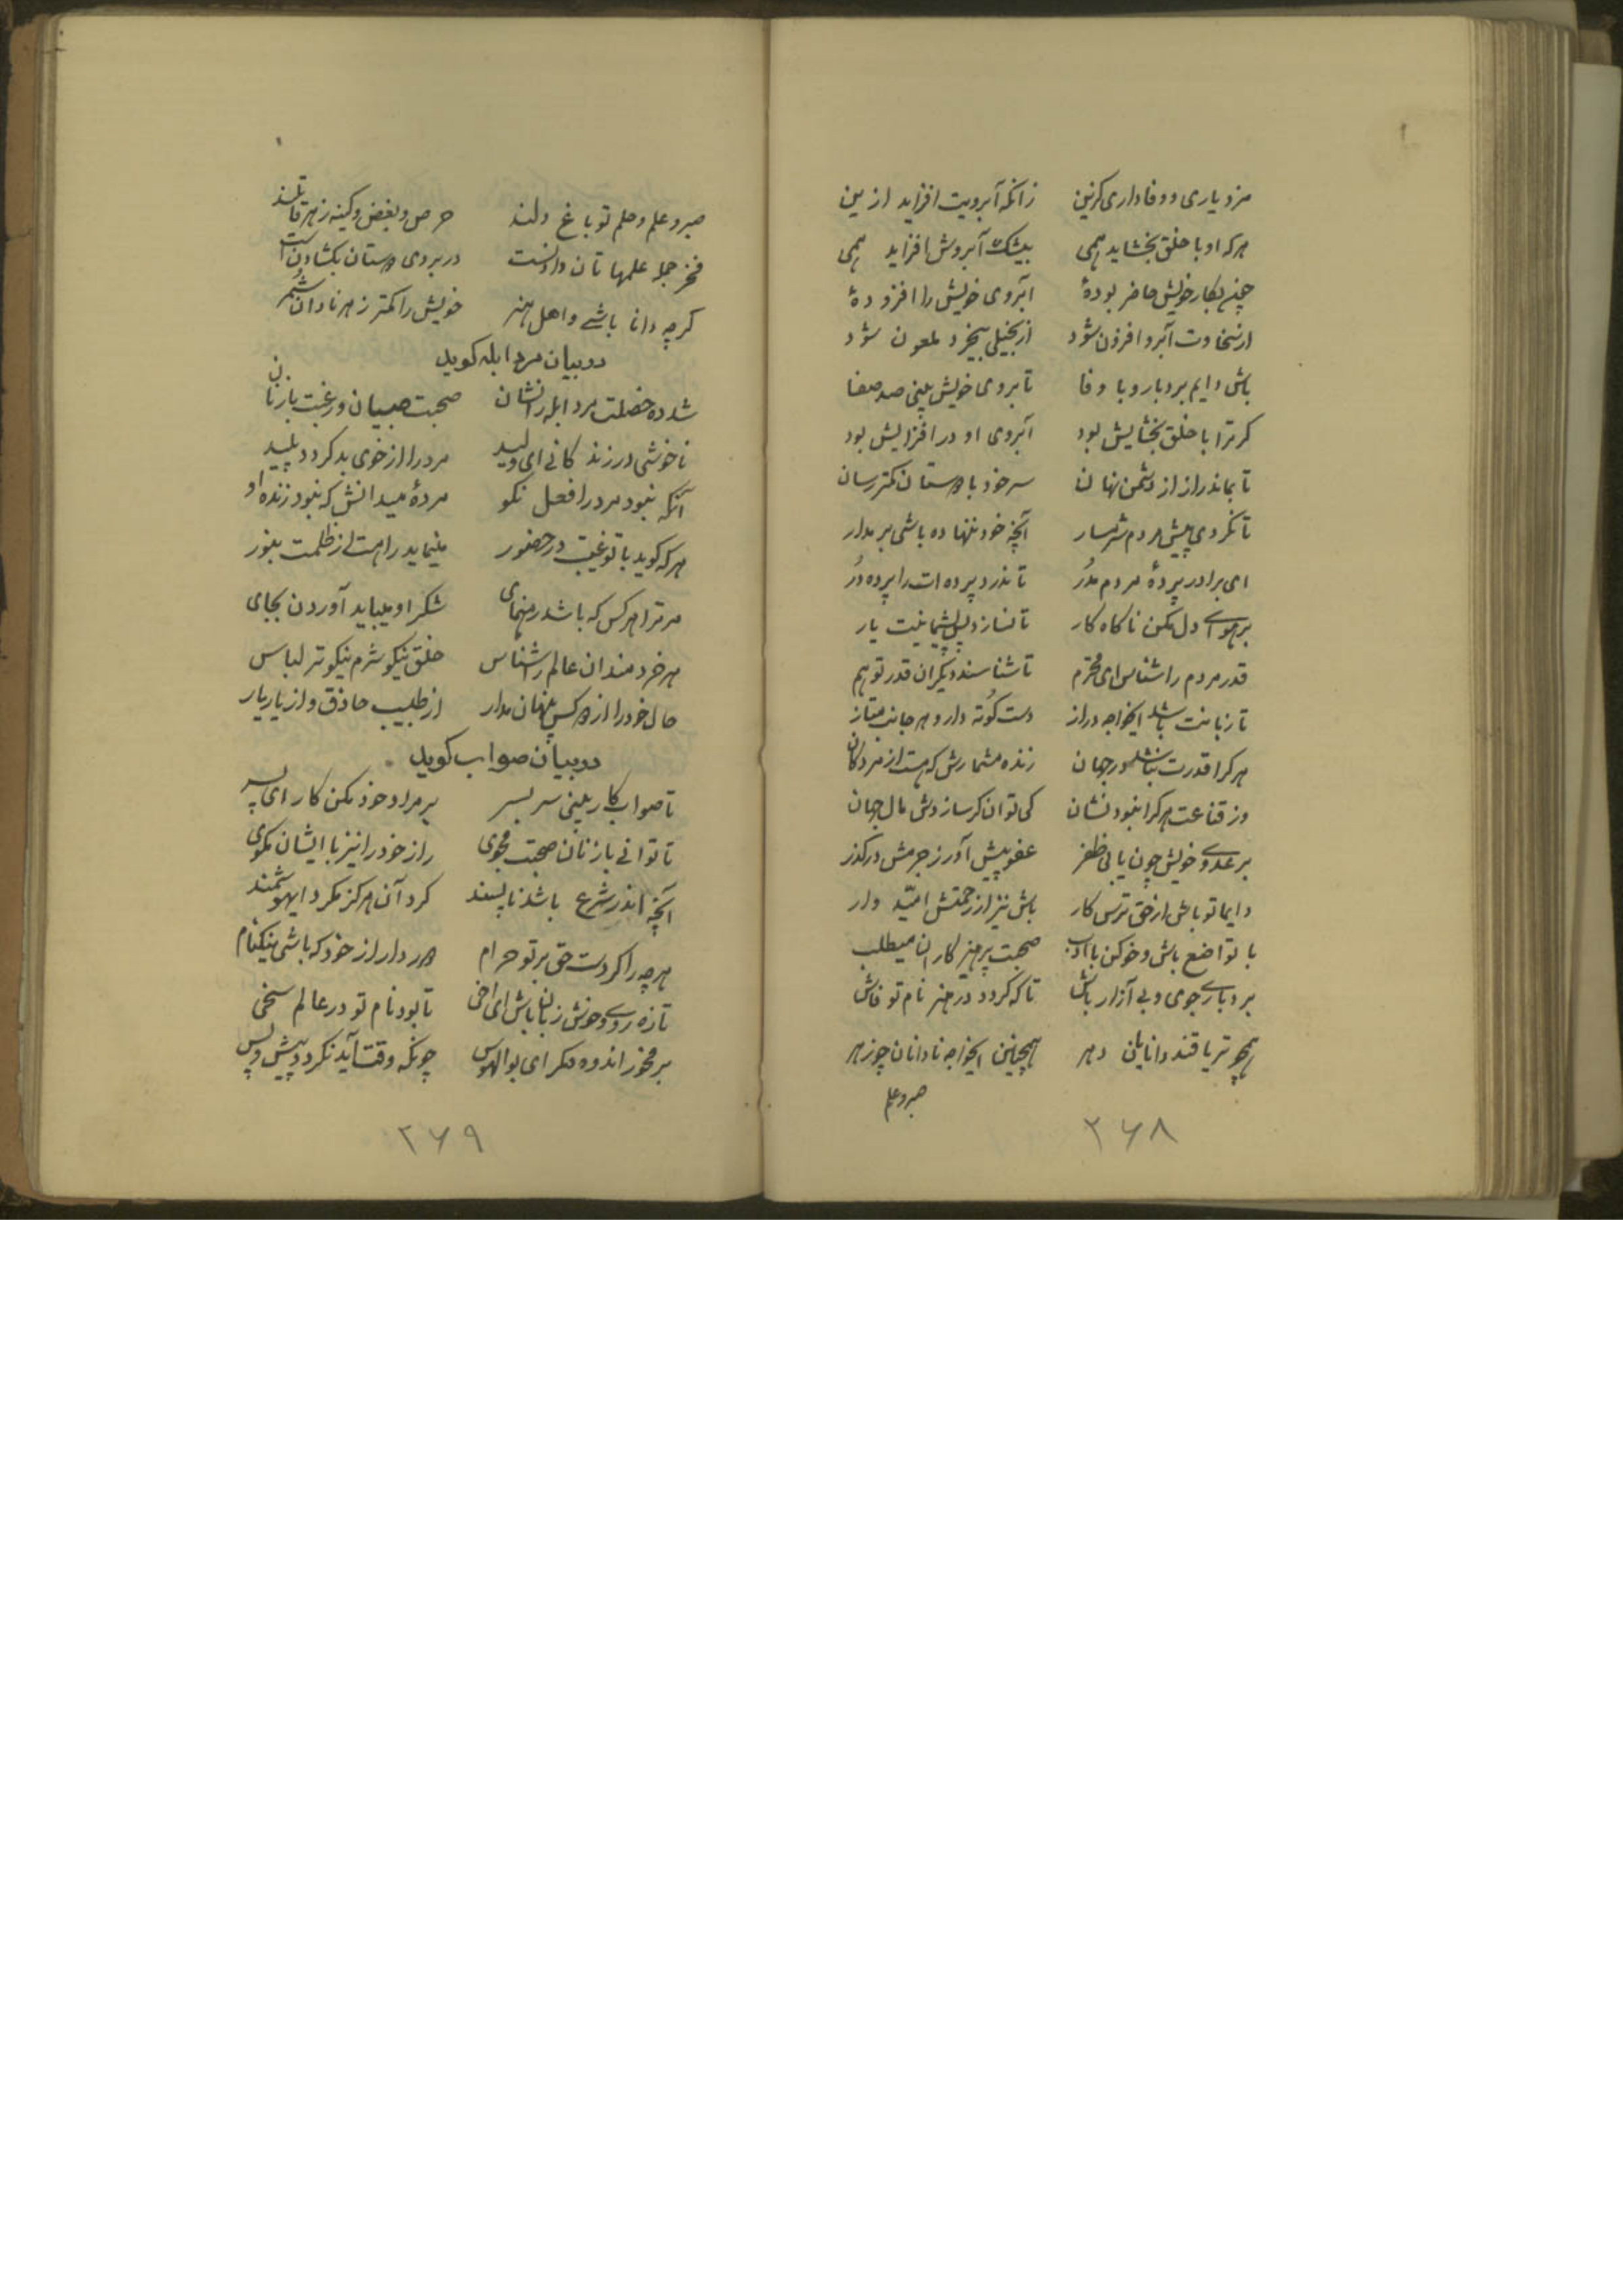 مرد یاری و وفاداری گزین زانکه آبرویت افزاید ازین
هرکه او با خلق بخشاید همی بیشک آبرویش افزاید همی
چون بکار خویش حاضر بودهٔ آبروی خویش را افزودهٔ
از سخاوت آبرو افزون شود از بخیلی بیخرد ملعون شود
باش دایم بردبار و با وفا تا بروی خویش بینی صد صفا
کر ترا با خلق بخشایش بود آبروی او در افزایش بود
تا بماند راز از دشمن نهان سر خود با دوستان کمتر رسان
تا نکردی پیش مردم شرمسار آنچه خود ننهاده باشی بر مدار
ای برادر پردهٔ مردم مدر تا ندرد پرده ات را پرده در
بر هوای دل مکن ناکاه کار تا نسازد پس پشیمانیت یار
قدر مردم را شناس ای محترم تا شناسند دیکران قدر تو هم
تا زبانت باشد ایخواجه دراز دست کوته دار و هر جانب متاز
هر کرا قدرت نباشد در جهان زنده مشمارش که هست از مردکان
وز قناعت هر کرا نبود نشان کی توانکر سازدش مال جهان
بر عدوی خویش چون یابی ظفر عفو پیش آور ز جرمش درکذر
دایما تو باش از حق ترس کار باش نیز از رحمتش امّید وار
با تواضع باش و خو کن با ادب صحبت پرهیزکاران میطلب
بردباری جوی و بی آزار باش تا که کردد در هنر نام تو فاش
همچو تریاقند دانایان دهر همچنین ایخواجه نادانان چو زهر
صبر و علم
۲۶۸
صبر و علم و حلم تو باغ دلند حرص و بغض و کینه زهر قاتلند
فخر جمله علمها تان دادنست در بروی دوستان بکشادنست
کرچه دانا باشی و اهل هنر خویش را کمتر ز هر نادان شمر
در بیان مرد ابله کوید
شد دو خصلت مرد ابله را نشان صحبت صبیان و رغبت با زنان
ناخوشی در زندکانی ای ولید مرد را از خوی بد کردد پلید
آنکه نبود مرد را فعل نکو مردهٔ میدانش که نبود زنده او
هرکه کوید با تو غیبت در حضور مینماید راهت از ظلمت بنور
مر ترا هر کس که باشد رهنمای شکر او میباید آوردن بجای
مر خردمندان عالم را شناس خلق نیکو شرم نیکوتر لباس
حال خود را از دو کس پنهان مدار از طبیب حاذق و از یار یار
در بیان صواب کوید
تا صواب کار بینی سر بسر بر مراد خود مکن کار ای پسر
تا توانی با زنان صحبت مجوی راز خود را نیز با ایشان مکوی
آنچه اندر شرع باشد ناپسند کرد آن هرکز مکرد ایهوشمند
هرچه را کردست حق بر تو حرام دور دار از خود که باشی نیکنام
تازه روی و خوش زبان باش ای اخی تا بود نام تو در عالم سخی
بر مخور اندوه مکر ای بوالهوس چونکه وقت آید نکردد پیش و پس
۲۶۹